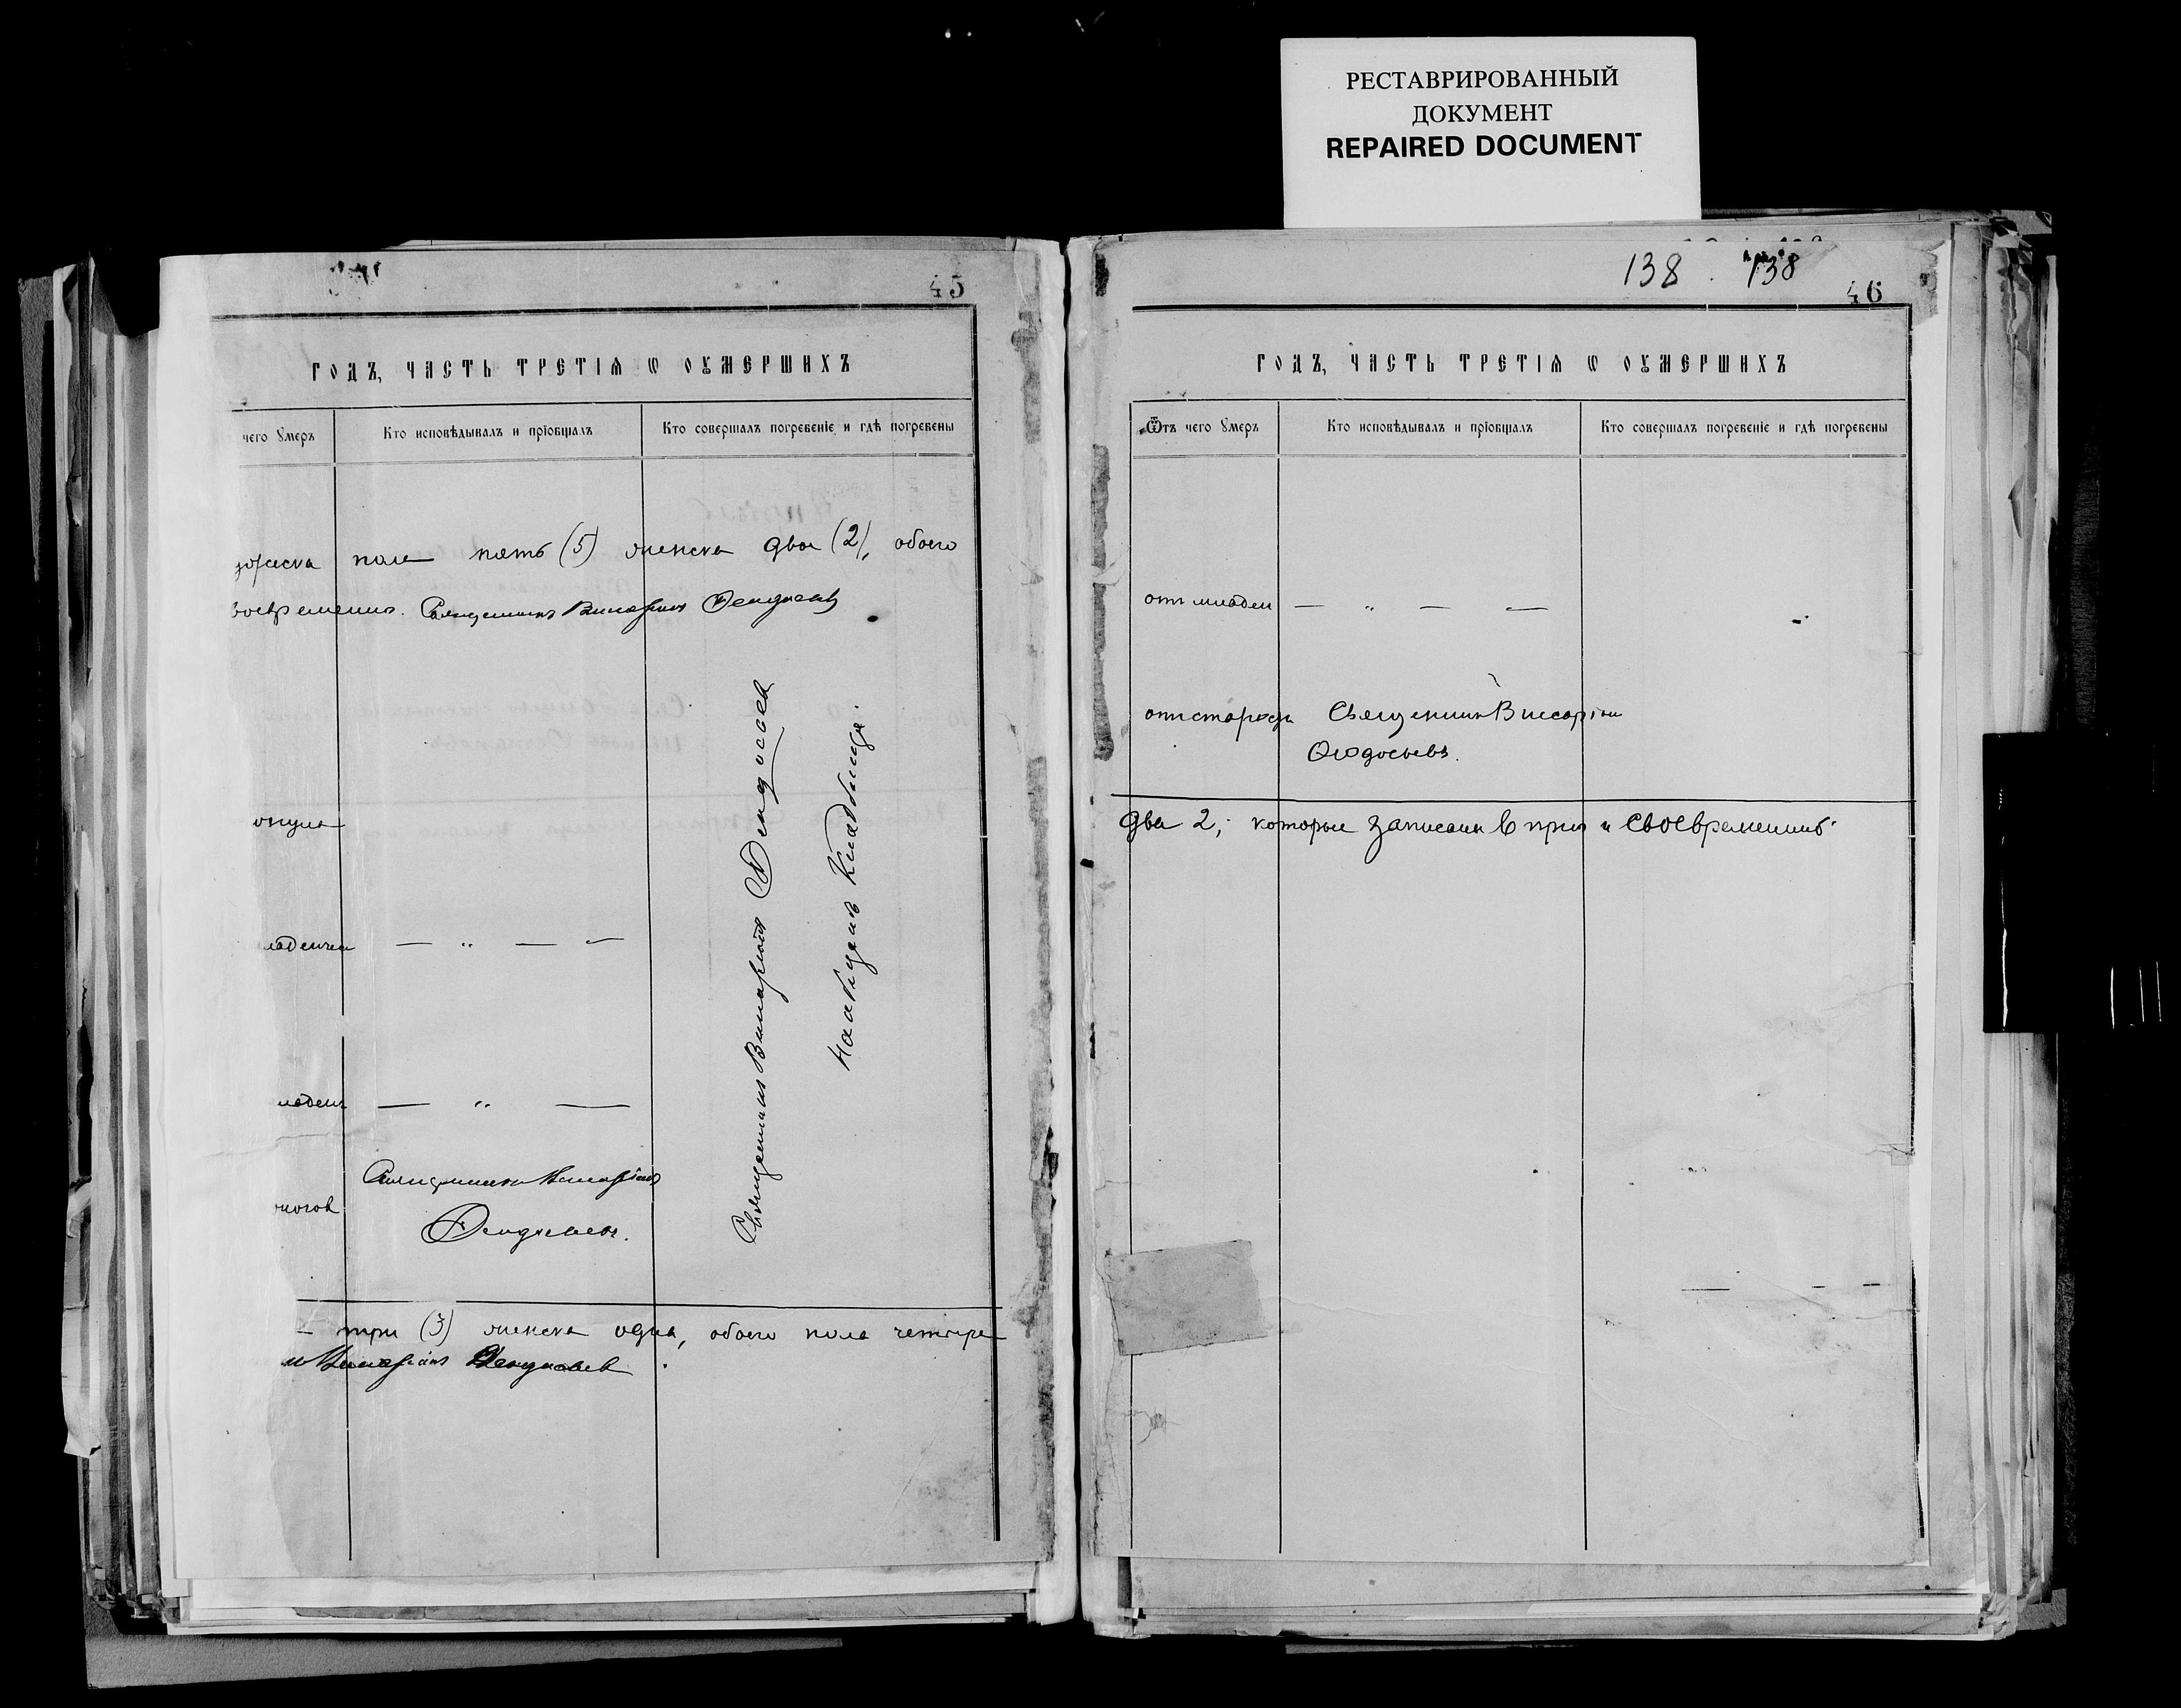 РЕСТАВРИРОВАННЫЙ
ДОКУМЕНТ
REPAIRED DOCUMENT
45
ГОДЪ, ЧАСТЬ ТРЕТІѦ Ѡ ОУМЕРШИХЪ
чего Умеръ
Кто исповѣдывалъ и прїобщалъ
Кто совершалъ погребенїе и гдѣ погребены
пола пять (5) женска два (2), обоего
Священникъ Висаріонъ Феодосьевъ
ладенчес
— „ — „
ладенч
— „ —
Священникъ Висаріонъ
Феодосьевъ.
Священникъ Висаріонъ Феодосьев
На общемъ Кладбище.
— три (3) женска одна, обоего пола четыре
Висаріонъ Феодосьев
138 . 138
46
ГОДЪ, ЧАСТЬ ТРЕТІѦ Ѡ ОУМЕРШИХЪ
Ѿтъ чего Умеръ
Кто исповѣдывалъ и прїобщалъ
Кто совершалъ погребенїе и гдѣ погребены
отъ младен — „ — —
отъ старости Священникъ Висаріон
Феодосьевъ.
два 2, которые записаны в и своевременно